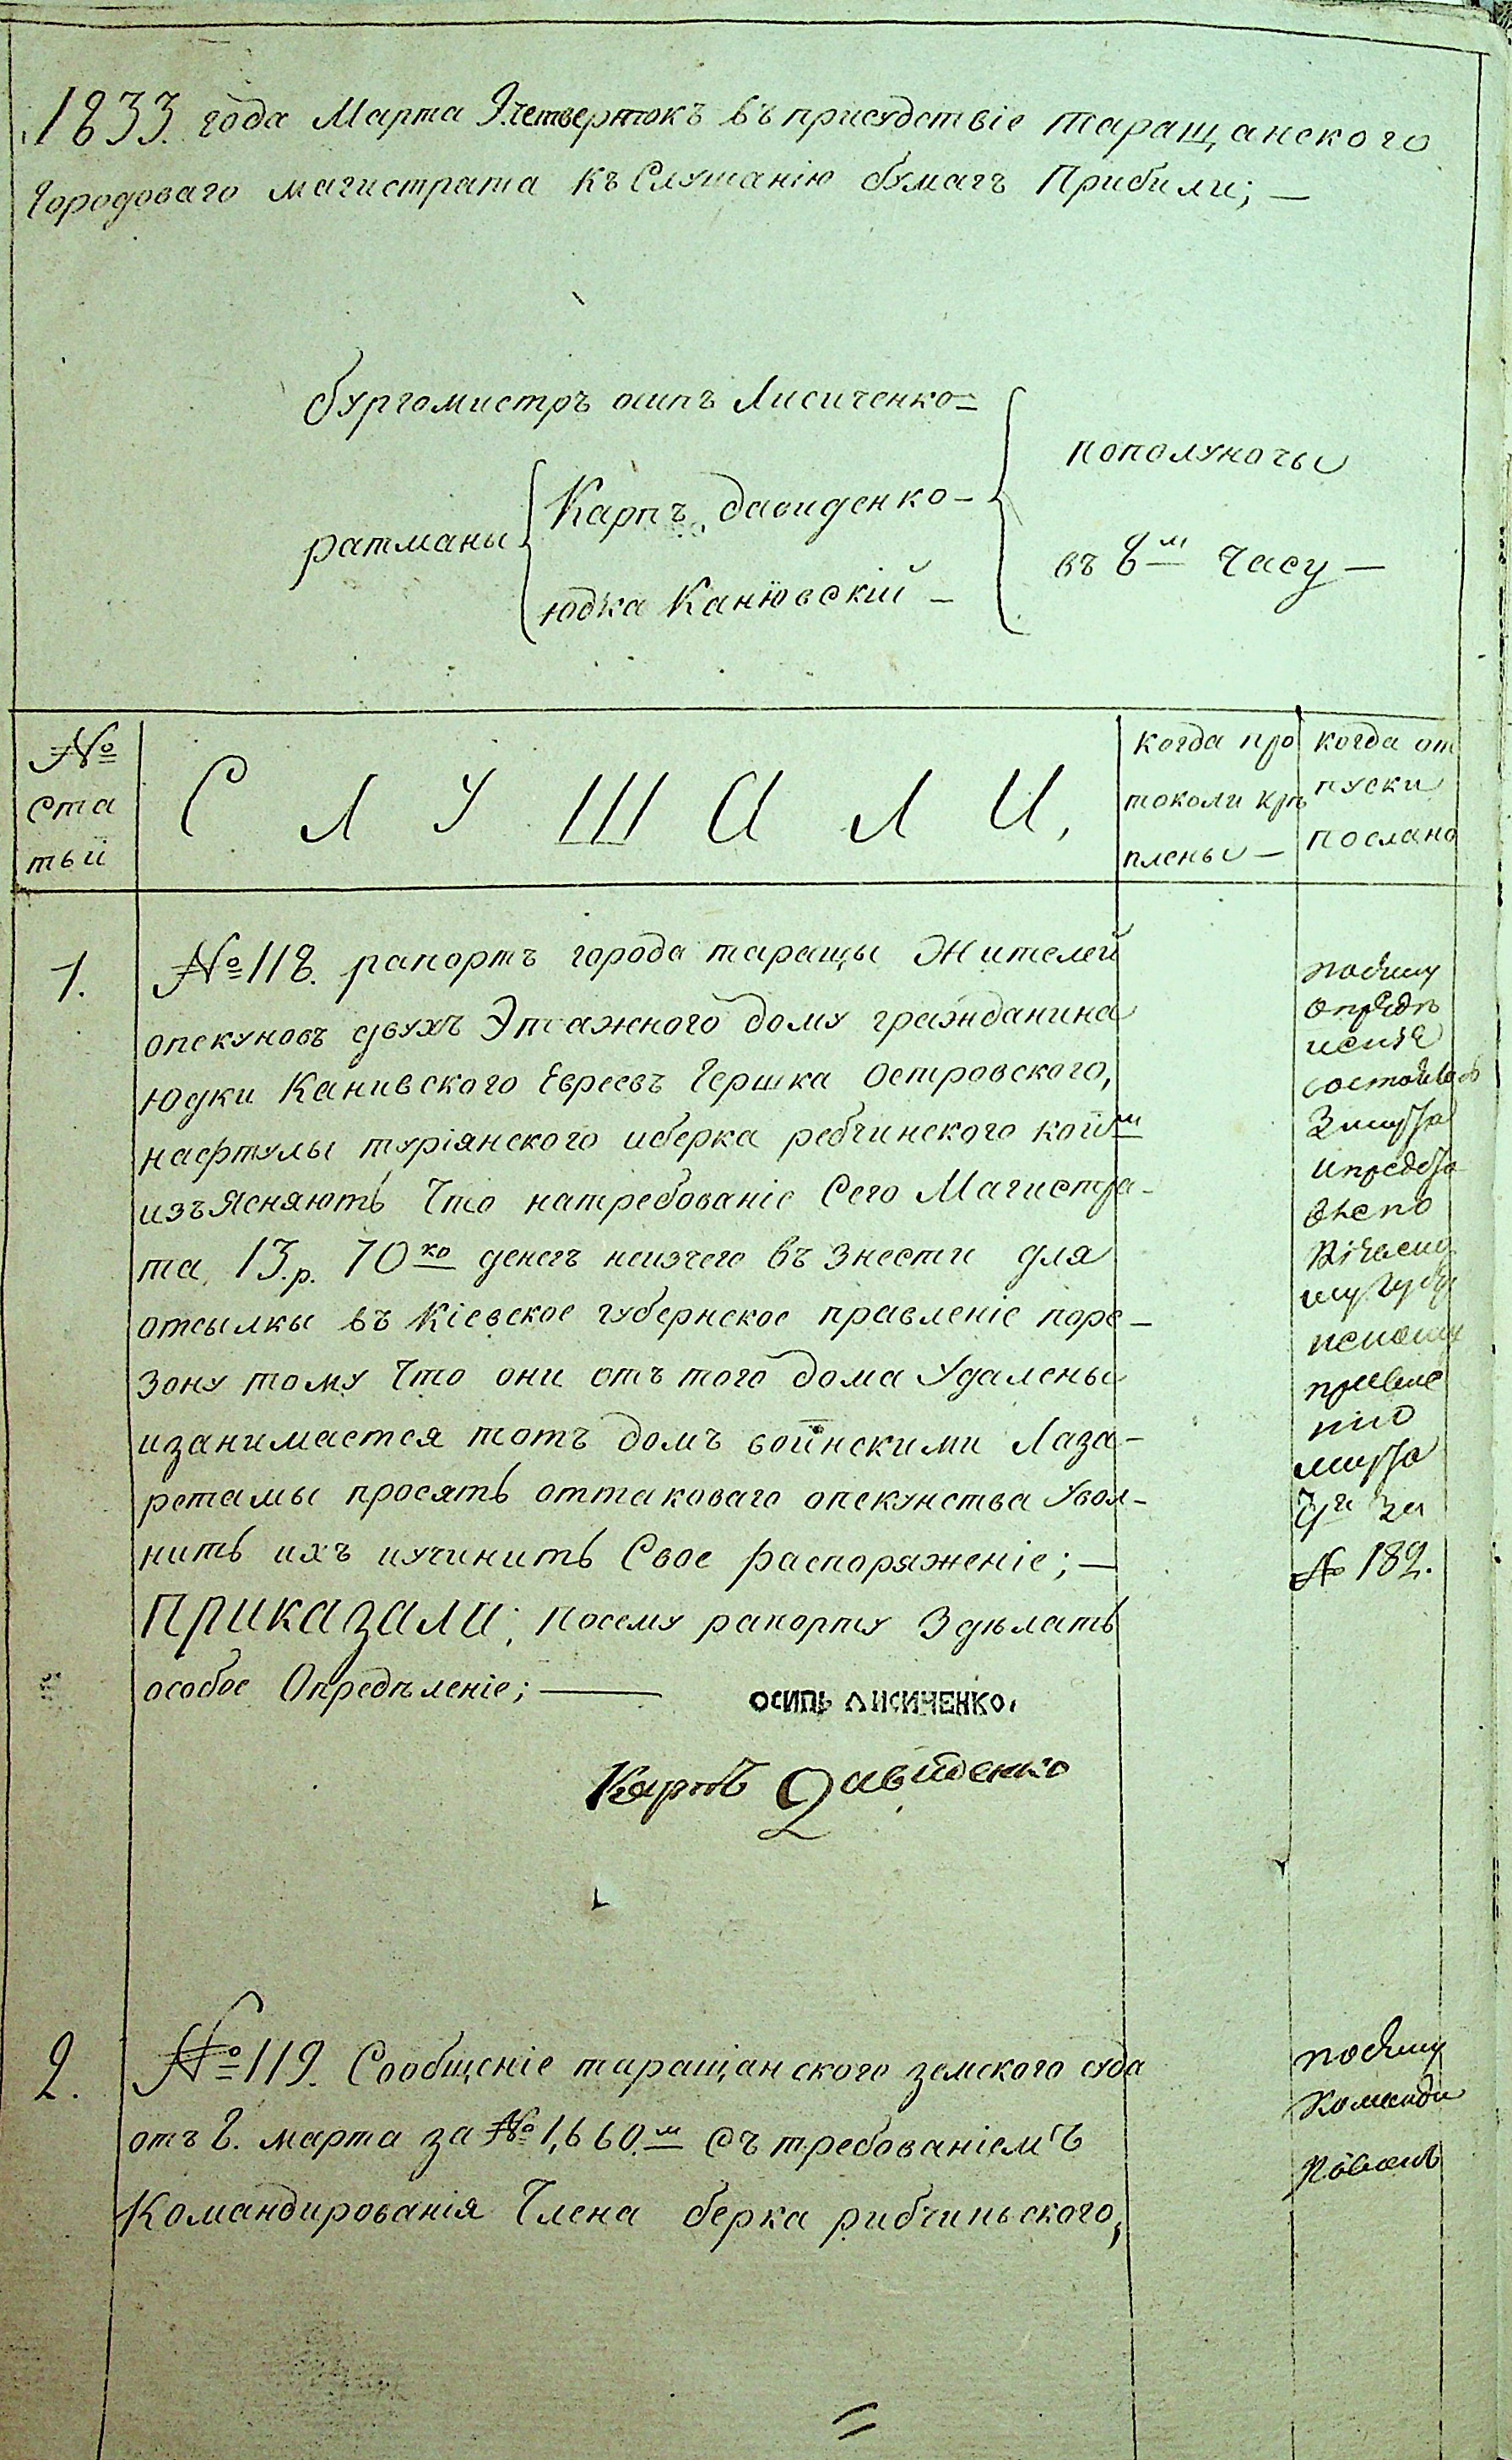 1833. года Марта 9. четвертокъ въ присудствіе таращанского
Городоваго магистрата къ Слушанію бумагъ Прибили; —
бургомистръ осипъ Лисиченко —
ратманы
Карпъ давиденко —
юдка Канювскій —
пополуночы
въ 8м часу —
№ ста тьй
СЛУШАЛИ,
когда про токоли крѣ плены —
когда от пуски послано
1.
№ 118. рапортъ города таращы Жителей
опекуновъ двухъ Этажного дому гражданина
Юдки Канивского Евреевъ Гершка Островского,
нафтулы туріянского иберка ребчинского коим
изъясняютъ Что натребованіе Сего Магистра-
та, 13.р. 70ко денегъ неизчего въ знести для
отсылкы въ Кіевское губернское правленіе поре-
зону тому Что они отъ того дома Удалены
изанимается тотъ домъ воинскими Лаза-
ретамы просятъ оттаковаго опекунства Увол-
нить ихъ иучинить Свое распоряженіе; —
Приказали; посему рапорту Здѣлать
особое Опредѣленіе; —
ОСИПЬ ЛИСИЧЕНКО.
Карпъ Давиденко
по сему
опредѣ
состоялось
3 марта
правле
нію
марта
7го за
№ 182.
2.
№ 119. Сообщеніе таращанского земского суда
отъ 8. марта за № 1,660.м Съ требованіемъ
Командированія Члена берка рибчиньского,
по сему
команди
рованъ